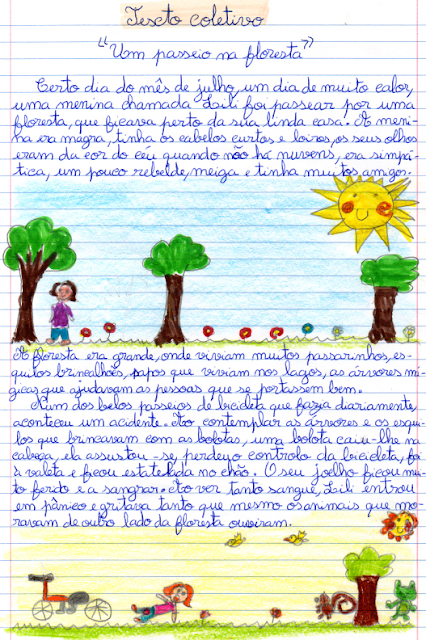 Texto coletivo
"Um passeio na floresta"
Certo dia do mês de julho, um dia de muito calor,
uma menina chamada Lili foi passear por uma
floresta, que ficava perto da sua linda casa. A meni-
na era magra, tinha os cabelos curtos e loiros, os seus olhos
eram da cor do céu quando não há nuvens, era simpá-
tica, um pouco rebelde, meiga e tinha muitos amigos.
A floresta era grande, onde viviam muitos passarinhos, es-
quilos brincalhões, sapos que viviam nos lagos, as árvores má-
gicas que ajudavam as pessoas que se portassem bem.
Num dos belos passeios de bicicleta que fazia diariamente,
aconteceu um acidente. Ao contemplar as árvores e os esqui-
los que brincavam com as bolotas, uma bolota caiu-lhe na
cabeça, ela assustou-se, perdeu o controlo da bicicleta, foi
à valeta e ficou estatelada no chão. O seu joelho ficou mui-
to ferido e a sangrar. Ao ver tanto sangue, Lili entrou
em pânico e gritava tanto que mesmo os animais que mo-
ravam de outro lado da floresta ouviram.